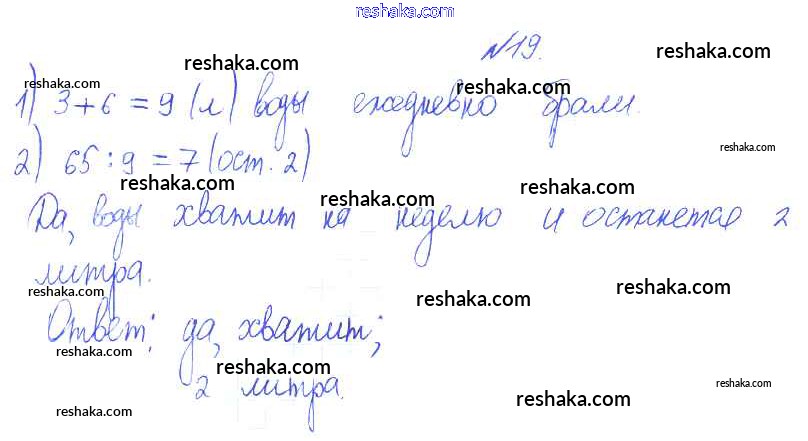 reshaka.com
№19.
reshaka.com reshaka.com
reshaka.com reshaka.com
1) 3+6 = 9 (л) воды ежедневно брали.
reshaka.com
2) 65 : 9 = 7 (ост. 2)
reshaka.com reshaka.com reshaka.com
Да, воды хватит на неделю и останется 2
литра.
reshaka.com reshaka.com reshaka.com
Ответ: да, хватит;
reshaka.com reshaka.com
2 литра.
reshaka.com reshaka.com reshaka.com